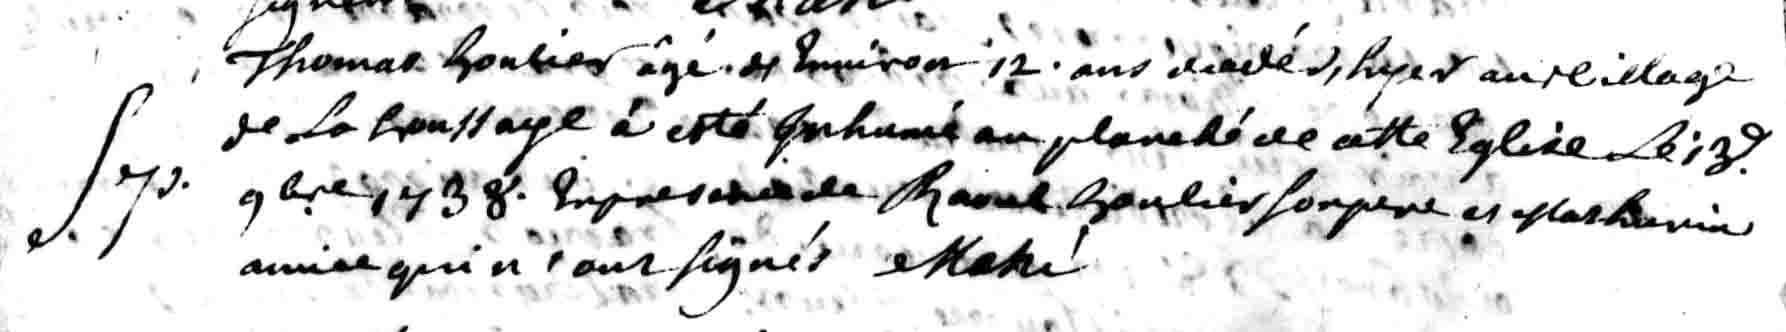 Thomas houlier âgé de Environ 12. ans décédé hyer au village
de La houssaye à esté Inhumé au planché de cette Eglise Le 13e
Sep. 9bre 1738. En presence de Raoul houlier son pere et Mathurin
qui n'ont signés Mahé